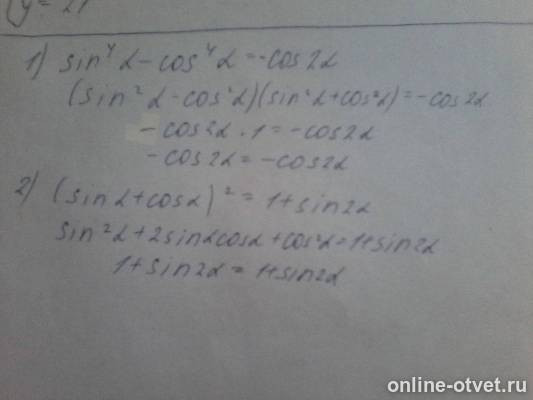 y = 21
1) sin⁴α - cos⁴α = -cos2α
(sin²α - cos²α)(sin²α + cos²α) = -cos2α
- cos2α · 1 = -cos2α
- cos2α = -cos2α
2) (sinα + cosα)² = 1 + sin2α
sin²α + 2sinαcosα + cos²α = 1 + sin2α
1 + sin2α = 1 + sin2α
online-otvet.ru